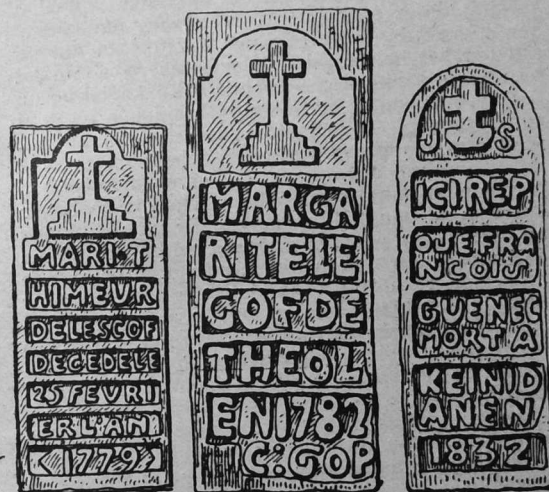 MARI·T
HIMEUR
DELESCOF
DECEDELE
25FEVRI
ERLAN
1779
MARGA
RITELE
GOFDE
THEOL
EN1782
C:GOP
J S
ICIREP
OSEFRA
NCOIS
GUENEC
MORT A
KEINID
ANEN
1832